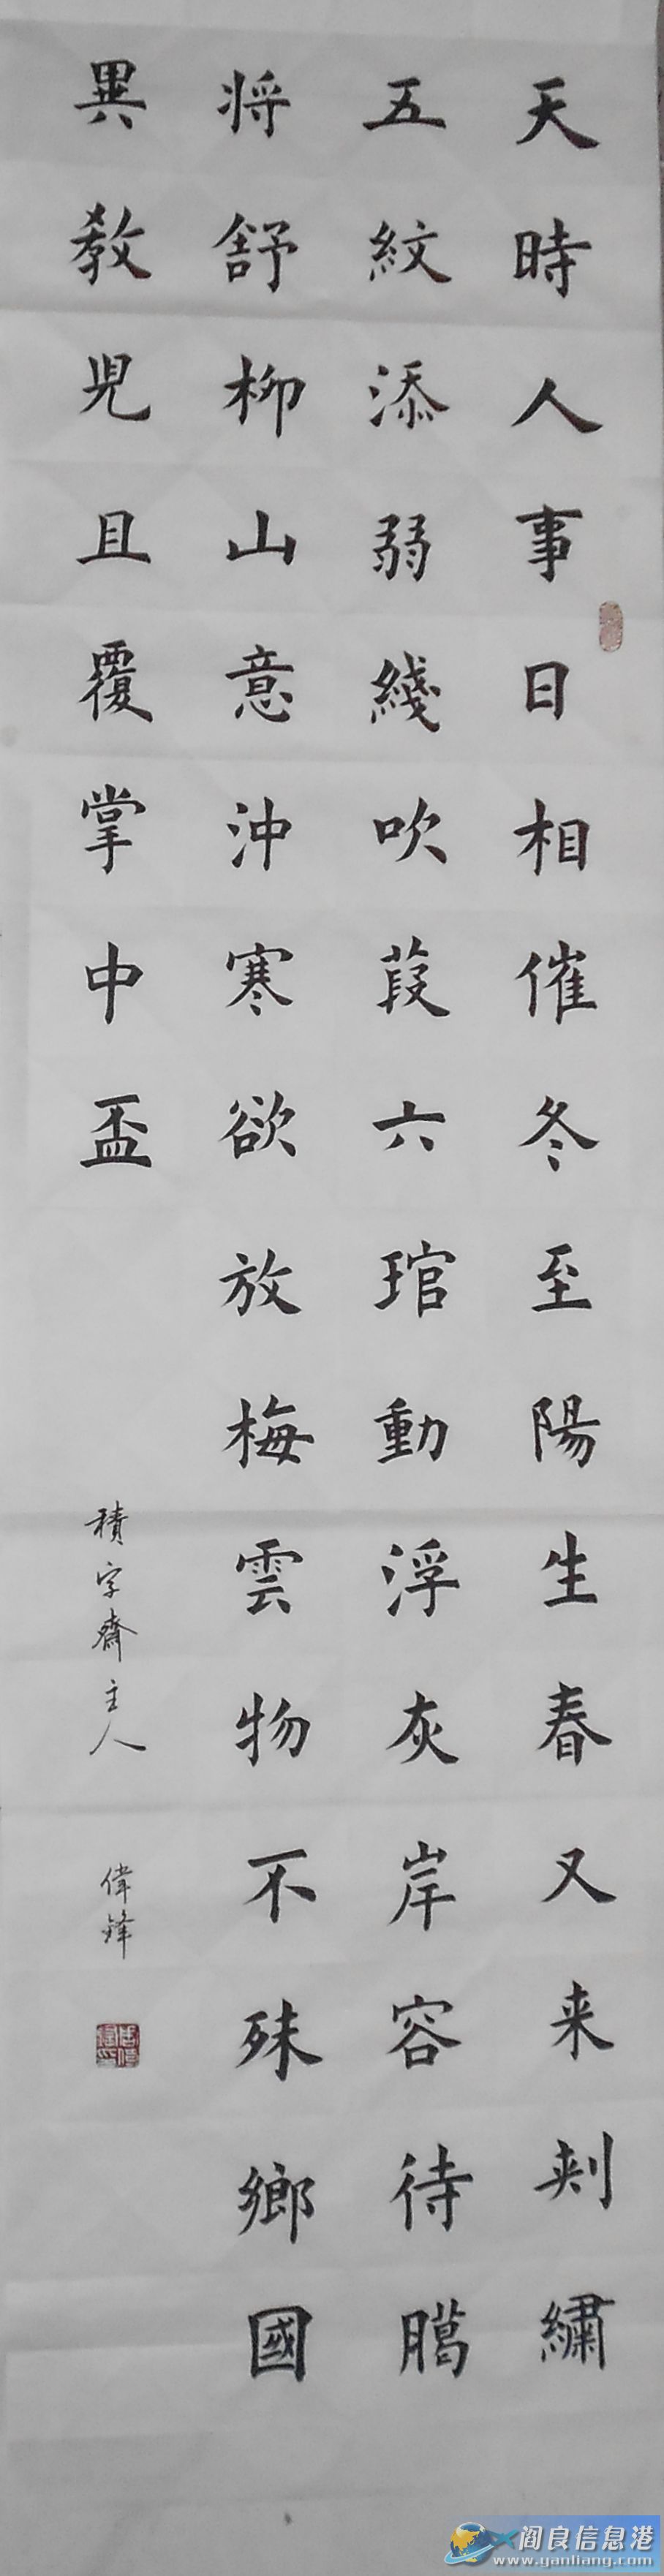 天時人事日相催冬至陽生春又来刾繡
五紋添弱綫吹葭六琯動浮灰岸容待臈
将舒柳山意沖寒欲放梅雲物不殊鄉國
異教兒且覆掌中盃
積字齋主人 偉鋒
阎良信息港
www.yanliang.com